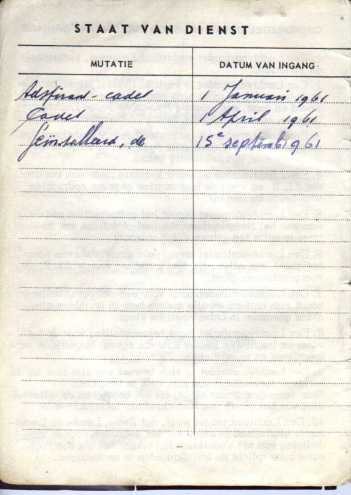 STAAT VAN DIENST
MUTATIE DATUM VAN INGANG
Adspirant - cadet 1 Januari 1961
Cadet 1 April 1961
Geïnstalleerd, de 15e september 1961